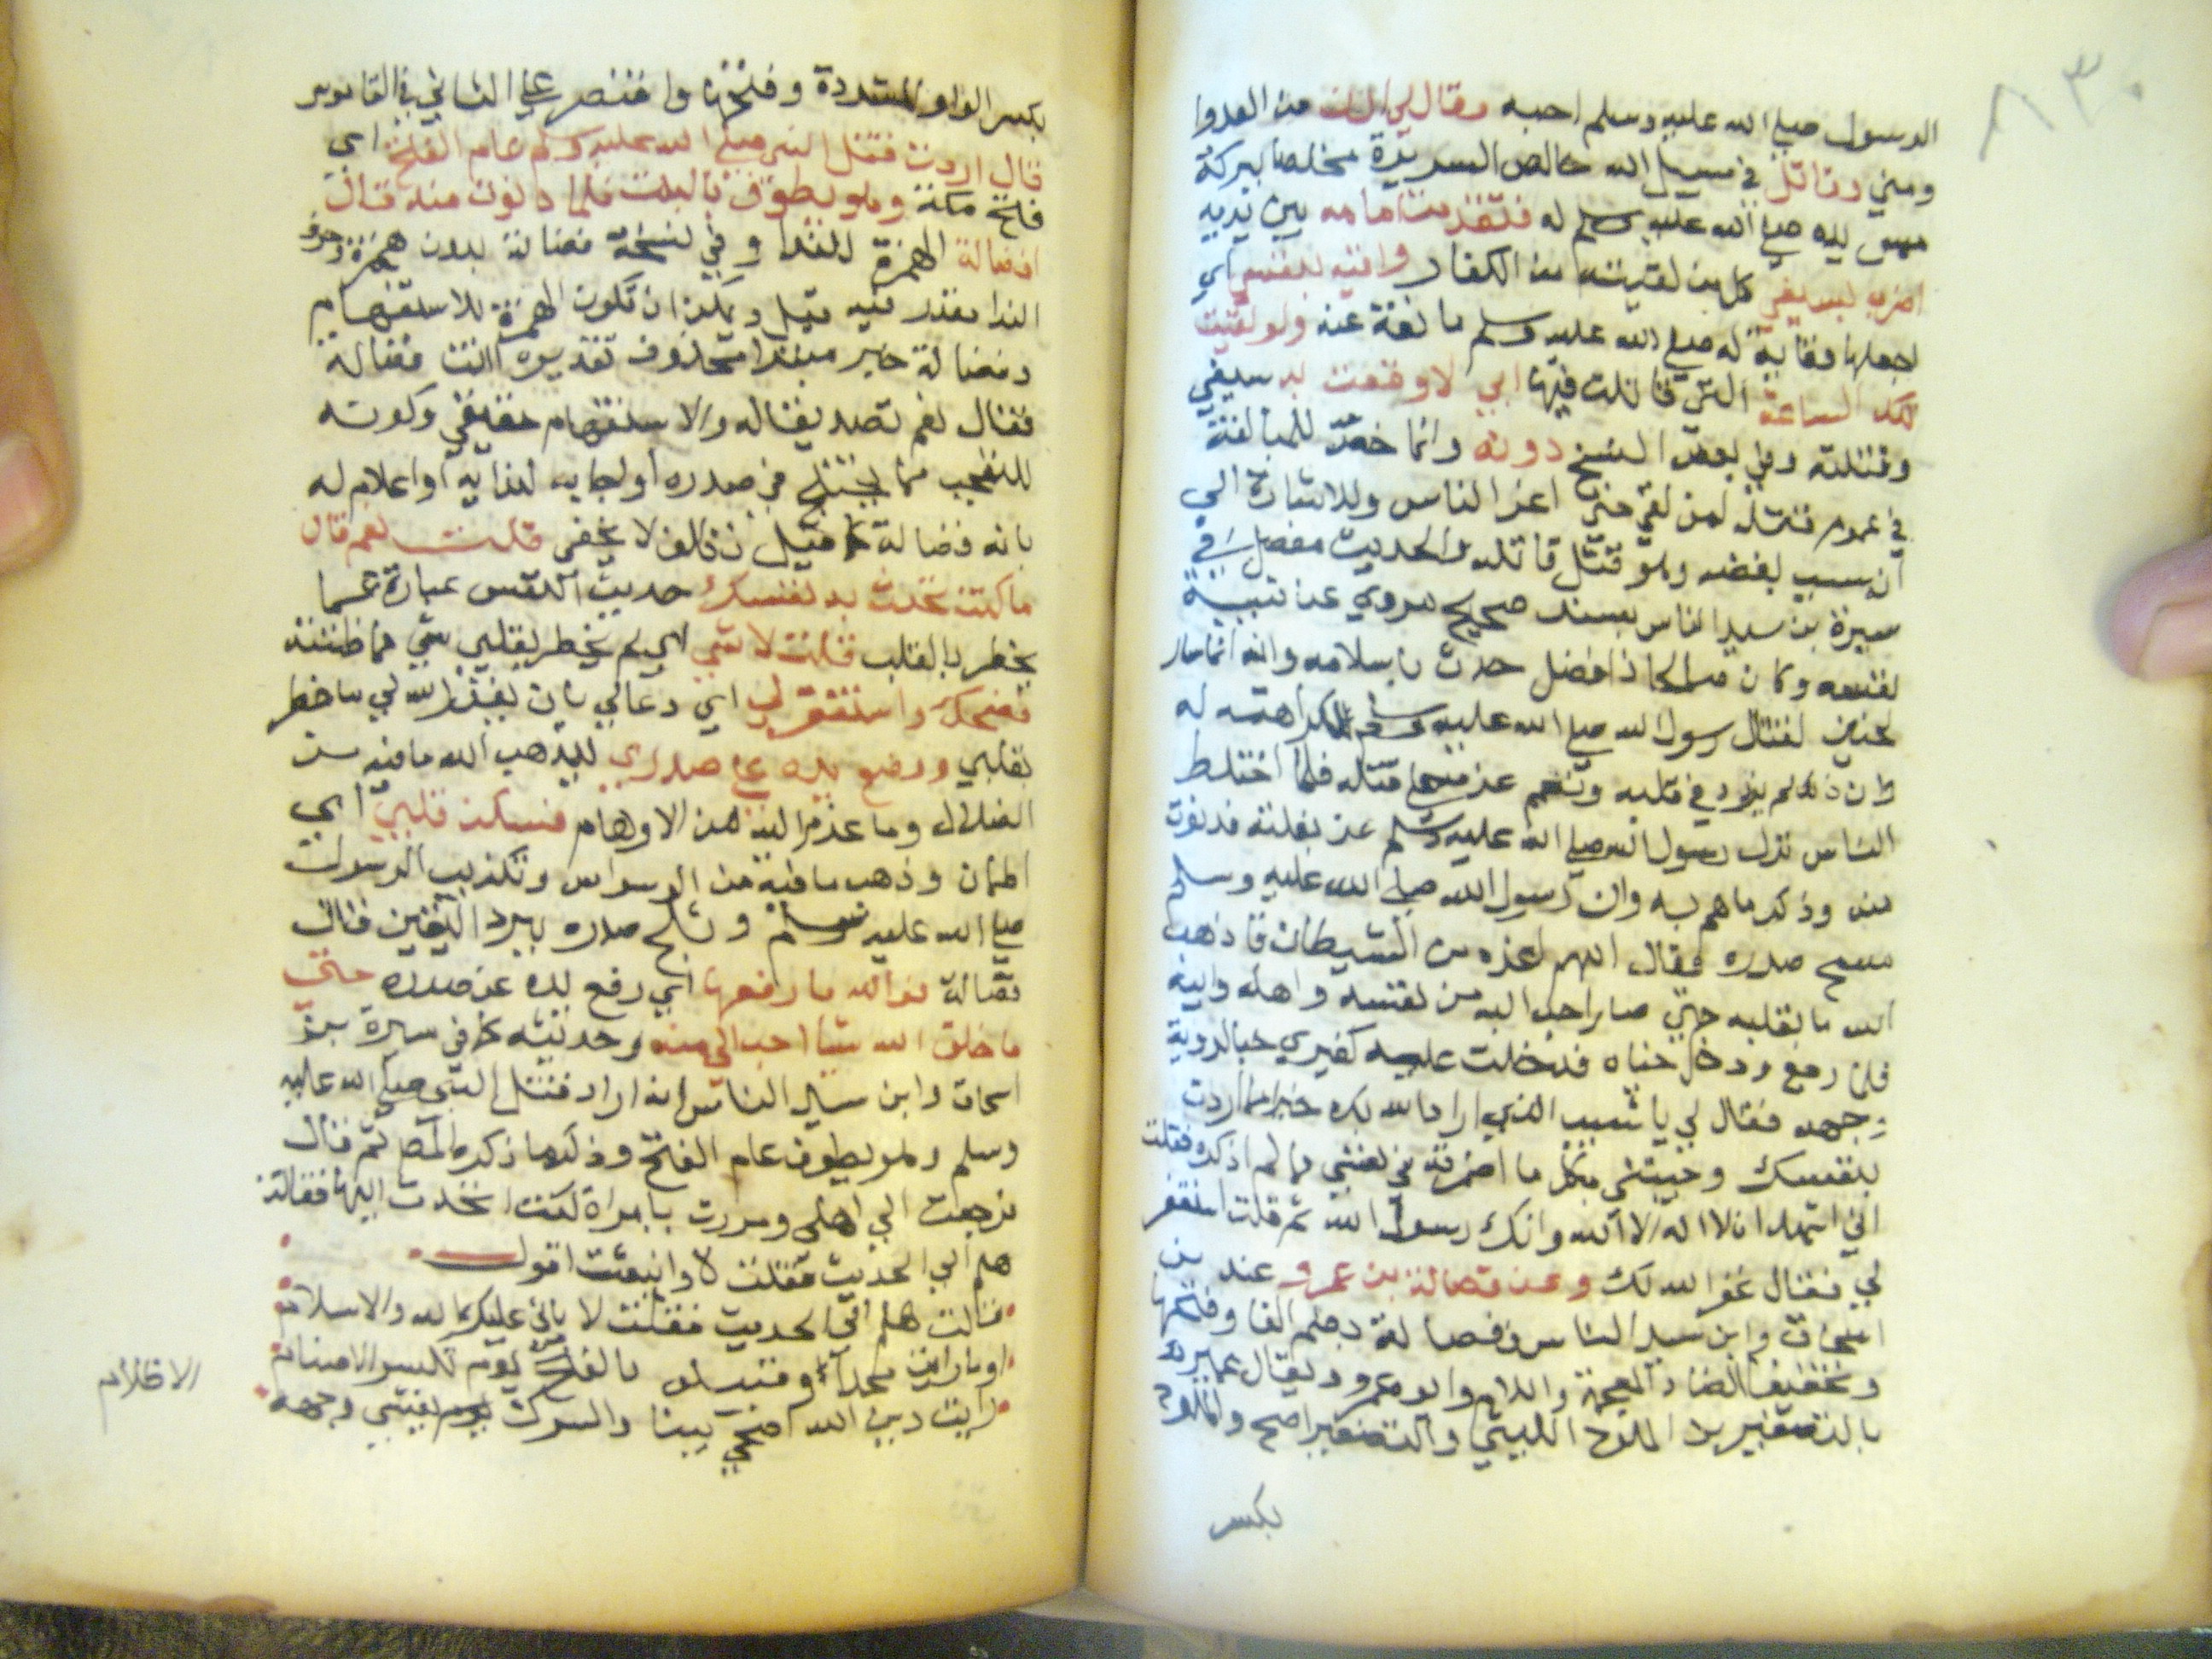 ٨٣٠
الرسول صلى الله عليه وسلم احبه وقال لي ادن من العدوا
ومني وقاتل في سبيل الله خالص السريرة مخلصا ببركة
يده صلى الله عليه وسلم له فتقدمت امامه بين يديه
اضرب بسيفي كل من لقيته من الكفار واقيه بنفسي اي
اجعلها وقاية له صلى الله عليه وسلم مانعة عنه ولو لقيت
تلك الساعة التي قاتلت فيها ابي لاوقعت به سيفي
وقتلته وفي بعض النسخ دونه وانما خصه للمبالغة
في عموم قتله لمن لقي حتى اعز الناس وللاشارة الى
ان سبب بغضه وهو قتل قاتله والحديث مفصل في
سيرة بن سيد الناس بسند صحيح مروي عن شيبة
نفسه وكان افضل حدث باسلامه وانه انما سار
لحنين لقتال رسول الله صلى الله عليه وسلم لكراهته له
وان ذلك لم يزد في قلبه قتله فلما اختلط
الناس نزل رسول الله صلى الله عليه وسلم عن بغلته فدنوت
منه وذكر ما هم به وان رسول الله صلى الله عليه وسلم
مسح صدره وقال اللهم اعذه من الشيطان فاذهب
الله ما بقلبه حتى صار احب اليه من نفسه واهله وابيه
فلما رجع ودخل خباه فدخلت عليه كغيري حبا لروية
وجهه فقال لي يا شيب الذي اراد الله بك خير مما اردت
بنفسك وحدثني بكل ما اضمرته في نفسي مما لم اذكره فقلت
اني اشهد ان لا اله الا الله وانك رسول الله ثم قلت استغفر
لي فقال غفر الله لك وعن فضالة بن عمرو عند بن
اسحاق وابن سيد الناس وفضالة بضم الفا وفتحها
وتخفيف الضاد المعجمة واللام وابو عمرو ويقال عمير
بالتصغير بن الملوح الليثي والتصغير اصح والملوح
بكسر
بكسر الواو المشددة وفتحها واقتصر على الثاني في القاموس
قال اردت قتل النبي صلى الله عليه وسلم عام الفتح اي
فتح مكة وهو يطوف بالبيت فلما دنوت منه قال
افضالة الهمزة للندا وفي نسخة فضالة بدون همزة وحرف
الندا مقدر فيه قيل ويمكن ان تكون الهمزة للاستفهام
وفضالة خبر مبتدا محذوف تقديره اانت فضالة
فقال نعم تصديقا له والاستفهام حقيقي وكونه
للتعجب مما يختلج في صدره اولجابه لندايه او اعلام له
بانه فضالة كما قيل تكلف لا يخفى قلت نعم قال
ما كنت تحدث به نفسك حديث النفس عبارة عما
يخطر بالقلب قلت لا شي اي لم يخطر بقلبي شي مما ظننته
فضحك واستغفر لي اي دعا لي بان يغفر الله لي ما خطر
بقلبي ووضع يده على صدري ليذهب الله ما فيه من
الضلال وما عزم اليه من الاوهام فسكن قلبي اي
اطمان وذهب ما فيه من الوسواس وتكذيب الرسول
صلى الله عليه وسلم وثلج صدره ببرد اليقين فقال
فضالة فوالله ما رفعها اي رفع يده عن صدره حتى
ما خلق الله شيا احب الي منه وحديثه كما في سيرة بن
اسحاق وابن سيد الناس انه اراد قتل النبي صلى الله عليه
وسلم وهو يطوف عام الفتح وذكر ما ذكره المص ثم قال
فرجعت الى اهلي ومررت بامراة كنت اتحدث اليها فقالت
هلم الى الحديث فقلت لا وانبعثت اقول
قالت هلم الى الحديث فقلت لا يابى عليك الله والاسلام
او ما رايت محمدا وقبيله بالفتح يوم تكسر الاصنام
لرايت دين الله اضحى بيننا والشرك يغشى وجهه
الاظلام